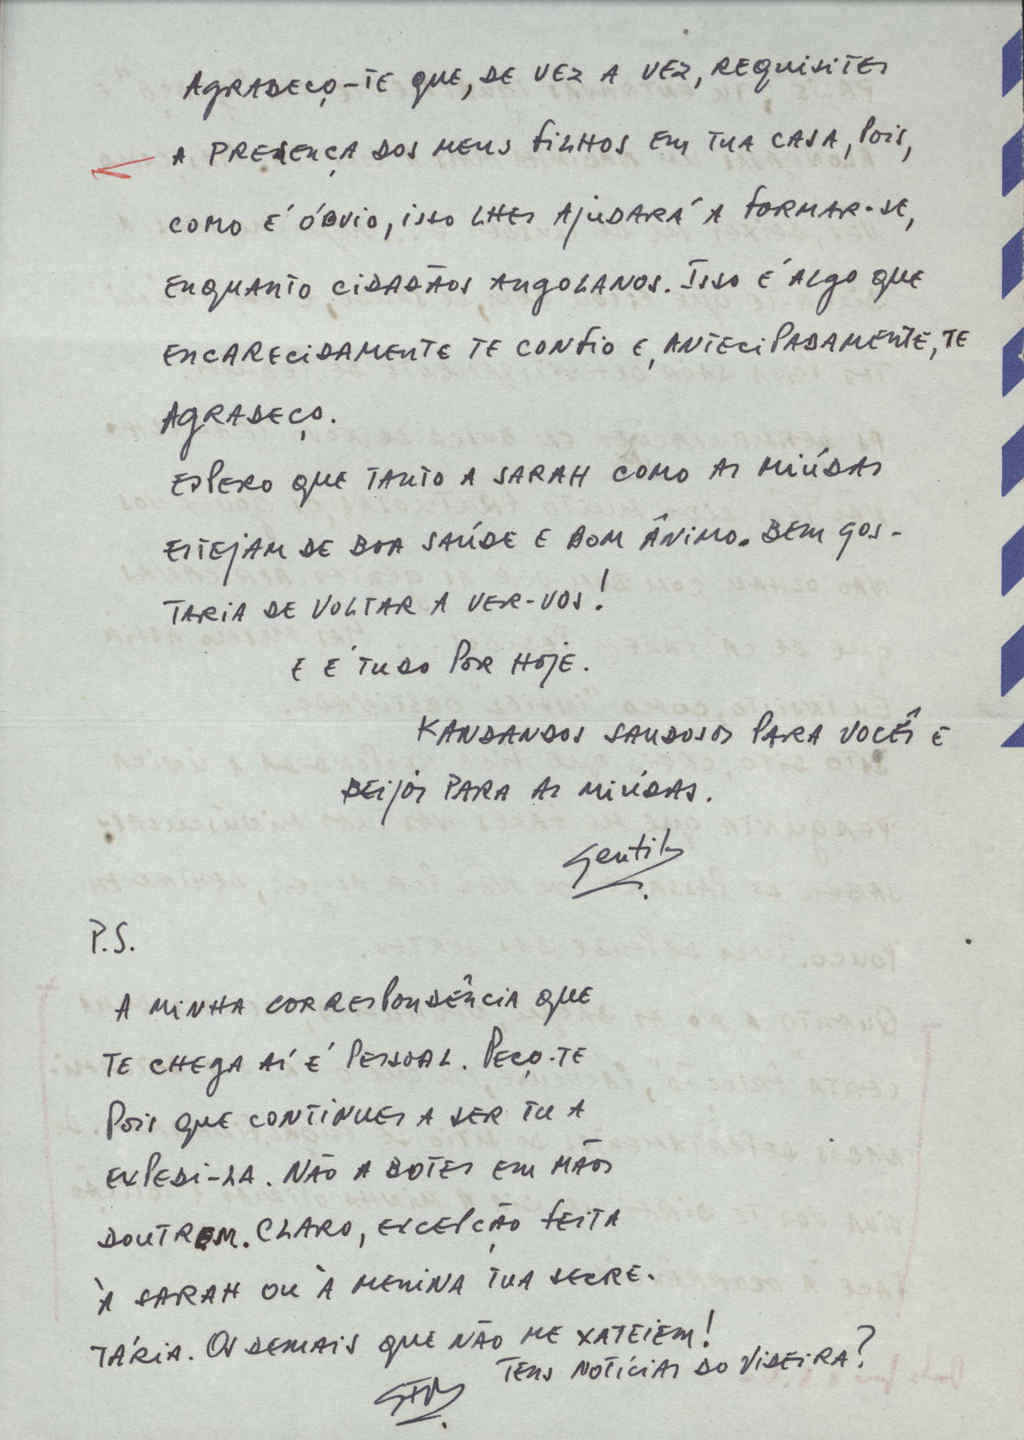 Agradeço-te que, de vez a vez, requisites
a presença dos meus filhos em tua casa, pois,
como é óbvio, isso lhes ajudará a formar-se,
enquanto cidadãos angolanos. Isso é algo que
encarecidamente te confio e, antecipadamente, te
agradeço.
Espero que tanto a Sarah como as miúdas
estejam de boa saúde e bom ânimo. Bem gos-
taria de voltar a ver-vos!
E é tudo por hoje.
Kandandos saudosos para vocês e
beijos para as miúdas.
Gentil
P.S.
A minha correspondência que
te chega aí é pessoal. Peço-te
pois que continues a ser tu a
expedi-la. Não a botes em mãos
doutrem. Claro, excepção feita
à Sarah ou à menina tua secre-
tária. Os demais que não me xateiem!
Tens notícias do Videira?